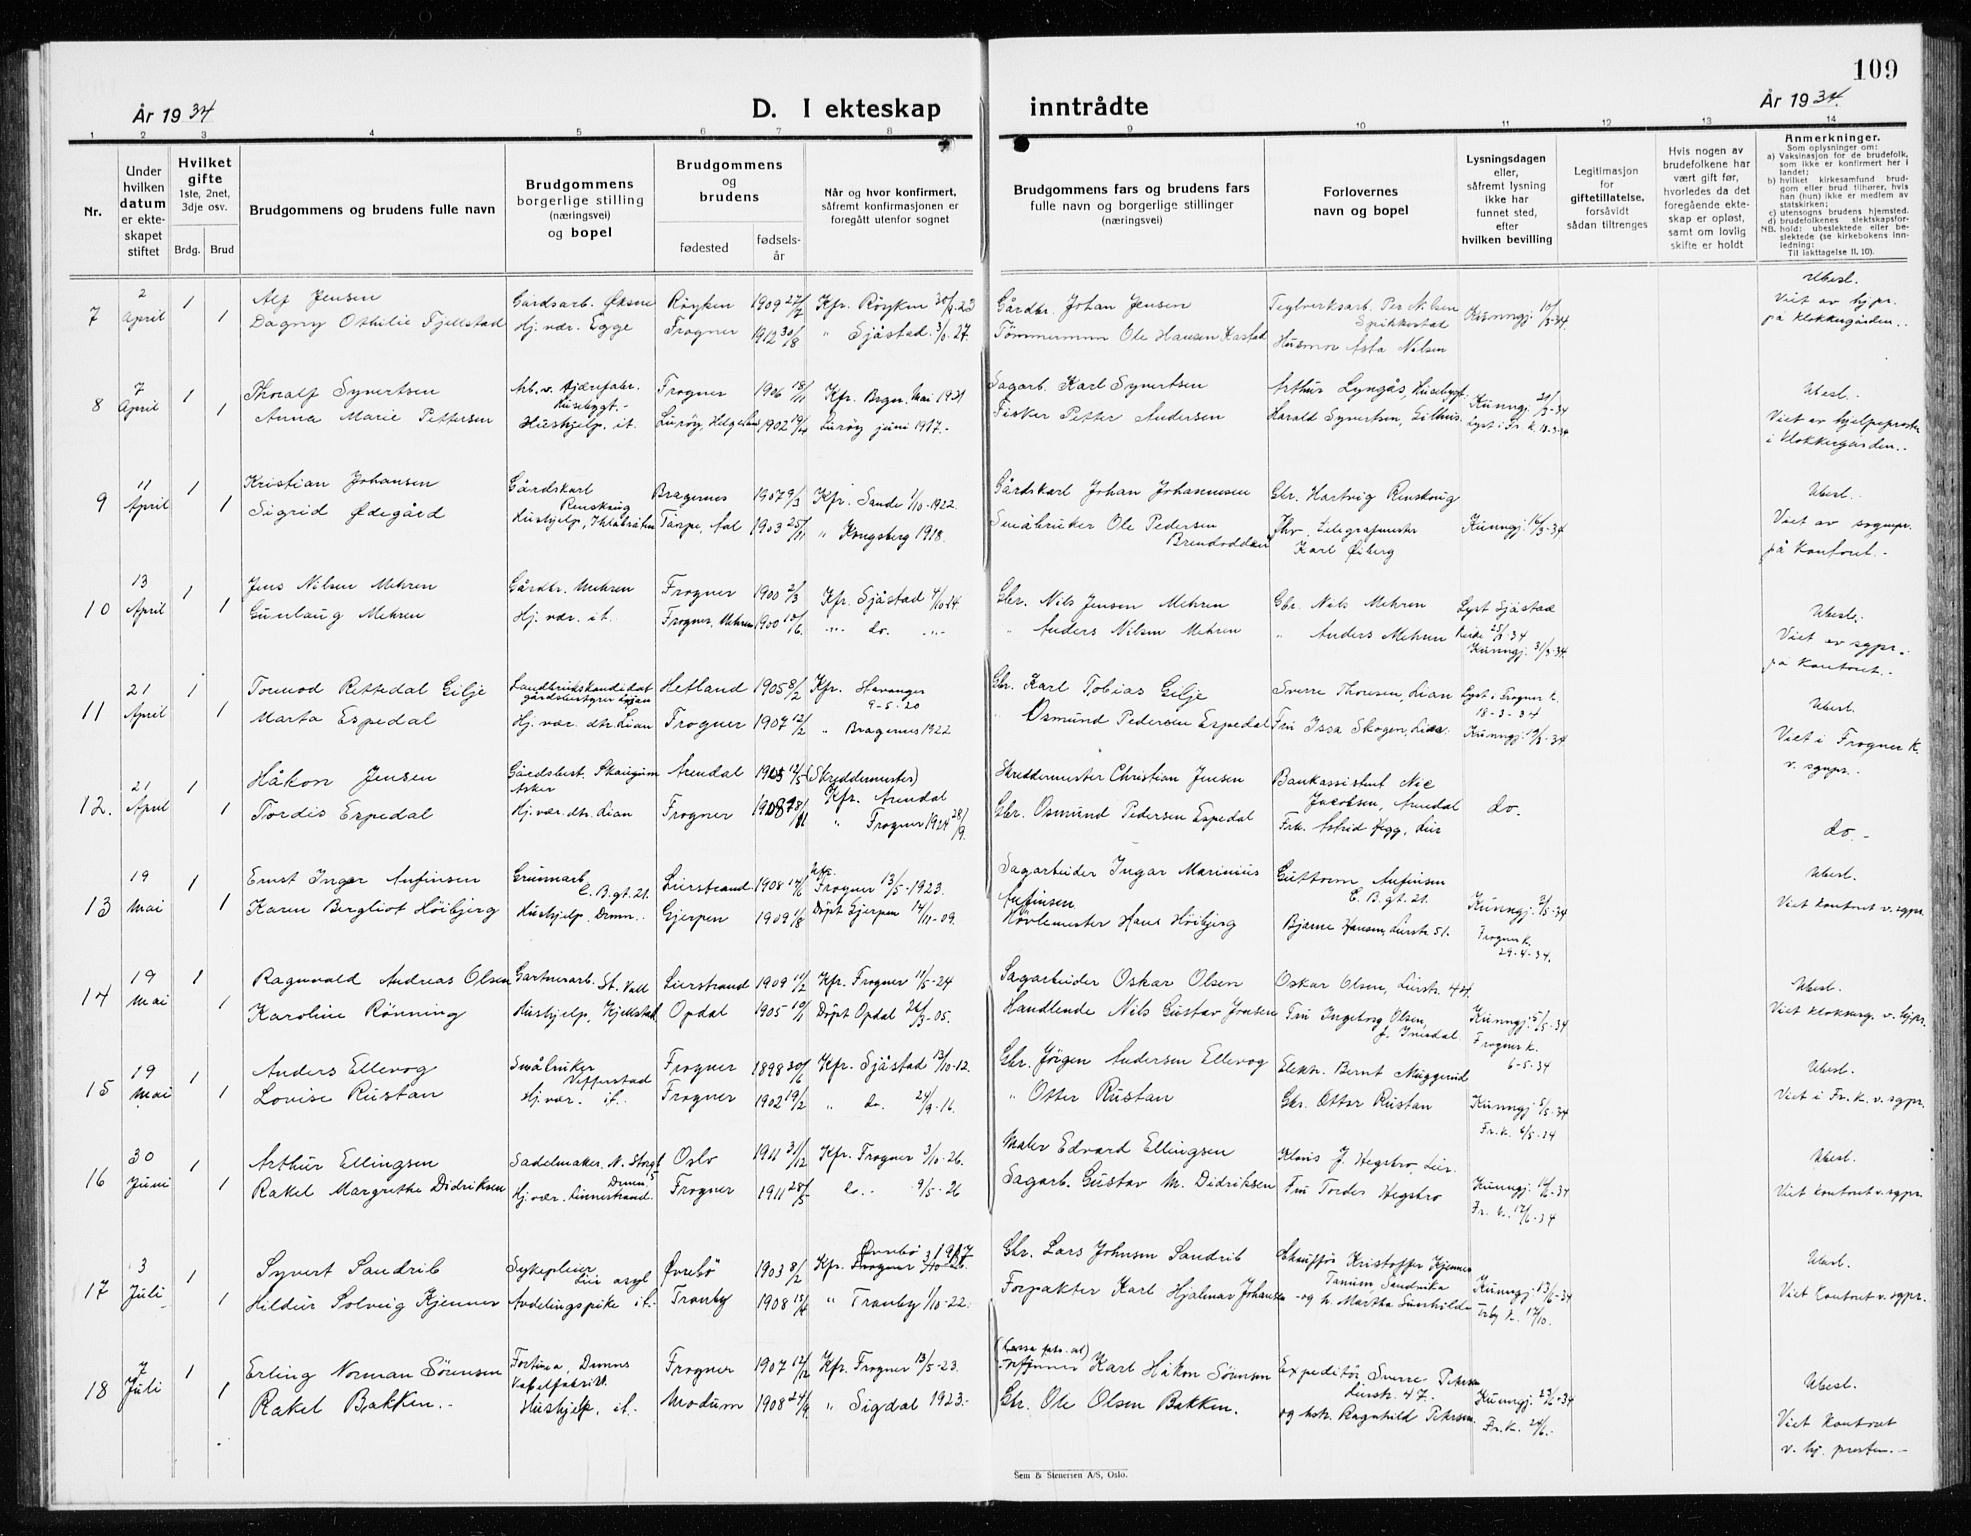 109
År 1934
D. I ekteskap inntrådte
År 1934.
1 2 3 4 5 6 7 8 9 10 11 12 13 14
Nr.
Under hvilken datum er ekte-skapet stiftet
Hvilket gifte
1ste, 2net, 3dje osv.
Brdg. Brud
Brudgommens og brudens fulle navn
Brudgommens borgerlige stilling (næringsvei) og bopel
Brudgommens og brudens
fødested
fødsels-år
Når og hvor konfirmert, såfremt konfirmasjonen er foregått utenfor sognet
Brudgommens fars og brudens fars fulle navn og borgerlige stillinger (næringsvei)
Forlovernes navn og bopel
Lysningsdagen eller, såfremt lysning ikke har funnet sted, efter hvilken bevilling
Legitimasjon for giftetillatelse, forsåvidt sådan tiltrenges
Hvis nogen av brudefolkene har vært gift før, hvorledes da det foregående ekte-skap er opløst, samt om lovlig skifte er holdt
Anmerkninger.
Som oplysninger om:
a) Vaksinasjon for de brudefolk, som ikke er konfirmert her i landet;
b) hvilket kirkesamfund brud-gom eller brud tilhører, hvis han (hun) ikke er medlem av statskirken;
c) utensogns brudens hjemsted.
d) brudefolkenes slektskapsfor-hold: ubeslektede eller be-slektede (se kirkebokens inn-ledning:
NB.
Til iakttagelse II. 10).
7 2 April 1 Alf Jensen Gårdsarb. Øksne Røyken 1909 27/2 Kfr. Røyken Gårdbr. Johan Jensen Teglverksarb. Per Nilsen Spikkestad Kunngj. 10/3-34. Ubesl.
1 Dagny Othilie Fjellstad Hj. vær. Egge Frogner 1912 30/8 " Sjåstad 3/10-27. Tømmermann Ole Hansen Kastad Husmor Asta Nilsen Viet av hj.pr. på klokkergården.
8 7 April 1 Thoralf Syvertsen Arb. v. Husebygt.- Frogner 1906 18/11 Kfr. Brgn. Mai 1921 Sagarb. Karl Syvertsen Arthur Lyngås, Husebygt. Kunngj. 21/3-34 Ubesl.-
1 Anna Marie Pettersen Hushjelp. it. Lurøy, Helgeland 1902 19/4 Lurøy juni 1917.- Fisker Petter Andersen Harald Syvertsen, Gilhus. Lyst i Fr. k. 18-3-34 Viet av hjelpeprosten i klokkergården.
9 11 April 1 Kristian Johansen Gårdskarl Renskaug Bragernes 1907 9/3 Kfr. Sande 1/10-1922. Gårdskarl Johan Johannesen Gbr. Hartvig Renskoug Ubesl.-
1 Sigrid Ødegård Hushjelp, Torpe, Aal 1903 25/11 " Kongsberg 1918. Småbruker Ole Pedersen Brendodden Fhv. Telegrafmester Karl Øiberg Kunngj. 16/3-34 Viet av sognepr. på kontoret.-
10 13 April 1 Jens Nilsen Mehren Gårdbr. Mehren Frogner 1900 2/3 Kfr. Sjåstad 4/10-14 Gbr. Nils Jensen Mehren Gbr. Nils Mehren Lyst Sjåstad Kirke Ubesl.-
1 Gunlaug Mehren Hj. vær. it. Frogner, Mehren 1900 10/6. " do. " " Anders Nilsen Mehren " Anders Mehren Kunngj. 31/3-34. Viet av sgpr. på kontoret.-
11 21 April 1 Tormod Rettedal Gilje Landbrukskandidat gårdsbestyrer Lian Hetland 1905 8/2 Kfr. Stavanger 9-5-20 Gbr. Karl Tobias Gilje Sverre Thoresen, Lian Lyst i Frogner k. 18-3-34 Ubesl.
1 Marta Espedal Hj. vær. dtr. Lian Frogner 1907 12/2 " Bragernes 1922 Osmund Pedersen Espedal Fru Issa Skogen, Lian. Kunngj. 19/3-34. Viet i Frogner k. v. sgnpr.-
12. 21 April 1 Håkon Jensen Gårdsbest. Skaugum Asker Arendal 1905 12/5 (Skreddermester) Kfr. Arendal Skreddermester Christian Jensen Bankassistent Nic Jacobsen, Arendal do.
1 Tordis Espedal Hj. vær. dtr. Lian Frogner 1908 " Frogner 1924 28/9. Gbr. Osmund Pedersen Espedal Frk. Astrid Hegg, Lier do.-
13 19 Mai 1 Ernst Ingar Anfinsen Grunnarb. E. B.gt. 21. Lierstrand 1908 14/6 Kfr. Frogner 13/5-1923. Sagarbeider Ingar Marinius Anfinsen Guttorm Anfinsen E. B.gt. 21. Kunngj. 2/5-34 Ubesl.
1 Karen Bergliot Höibjerg Hushjelp. Drmn. Gjerpen 1909 1/8 Döpt Gjerpen 14/11-09. Høvlemester Hans Höibjerg Bjarne Hansen, Lierstr. 51. Frogner k. 29-4-34. Viet kontoret v. sgpr.
14 19 Mai 1 Ragnvald Andreas Olsen Gartnerarb. St. Vall Lierstrand 1909 11/2 Kfr. Frogner 11/5-24 Sagarbeider Oskar Olsen Oskar Olsen, Lierstr. 44. Ubesl.
1 Karoline Rönning Hushjelp, Kjellstad Opdal 1905 19/1 Döpt Opdal 26/3-05. Handlende Nils Gustav Jonsen Fru Ingeborg Olsen, f. Innsdal Kunngj. 5/5-34 Frogner k. 6-5-34 Viet klokkerg. v. hj.pr.
15 19 Mai 1 Anders Ellevog Småbruker Vefferstad Frogner 1898 30/6 Kfr. Sjåstad 13/10-12. Gbr. Jörgen Andersen Ellevog Elektr. Bernt Muggerud Ubesl.
1 Lovise Rustan Hj. vær. it. Frogner 1902 19/2 " do. 24/9-16. " Otter Rustan Gbr. Otter Rustan Kunngj. 5/5-34 Fr. k. 6/5-34 Viet i Fr. k. v. sgpr.
16 30 Juni 1 Arthur Ellingsen Sadelmaker, N. Storgt. Drmn. Oslo 1911 31/12 Kfr. Frogner 3/10-26. Maler Edvard Ellingsen Klaus J. Hegsbro, Lier. Ubesl.
1 Rakel Margrethe Didriksen Hj. vær. Linnerstrand. Frogner 1911 28/5 do. 9/5-26 Sagarb. Gustav M. Didriksen Fru Tordes Hegsbro Kunngj. 14/6-34 Fr. k. 17/6-34 Viet kontoret v. sgpr.
17 3 Juli 1 Syvert Sandrib Sykepleier Lier asyl Øvrebö 1903 8/2 Kfr. Øvrebö 1917 Frogner Gbr. Lars Johnsen Sandrib Chauffør Kristoffer Kjenner Tanum, Sandvika Ubesl.
1 Hildur Solveig Kjenner Avdelingspike it.- Tranby 1908 13/4 " Tranby 1/10-22. Forpakter Karl Hjalmar Johansen - og h. Martha Sunhilde Kunngj. 13/6-34 Trby k. 17/10. Viet kontoret v. sgpr.
18 7 Juli 1 Erling Norman Sörensen Fortinna, Drmns Kabelfabrikk Frogner 1907 12/12 Kfr. Frogner 13/5-23. Karl Håkon Sörensen Expeditör Sverre Petersen Lierstr. 47. Ubesl.
1 Rakel Bakken.- Hushjelp, it.- Modum 1908 24/4 " Sigdal 1923.- Gbr. Ole Olsen Bakken. og hstr. Ragnhild Petersen. Kunngj. 23/6-34 Fr. k. 24/6.- Viet kontoret v. hj. presten.-
Sem & Stenersen A/S, Oslo.